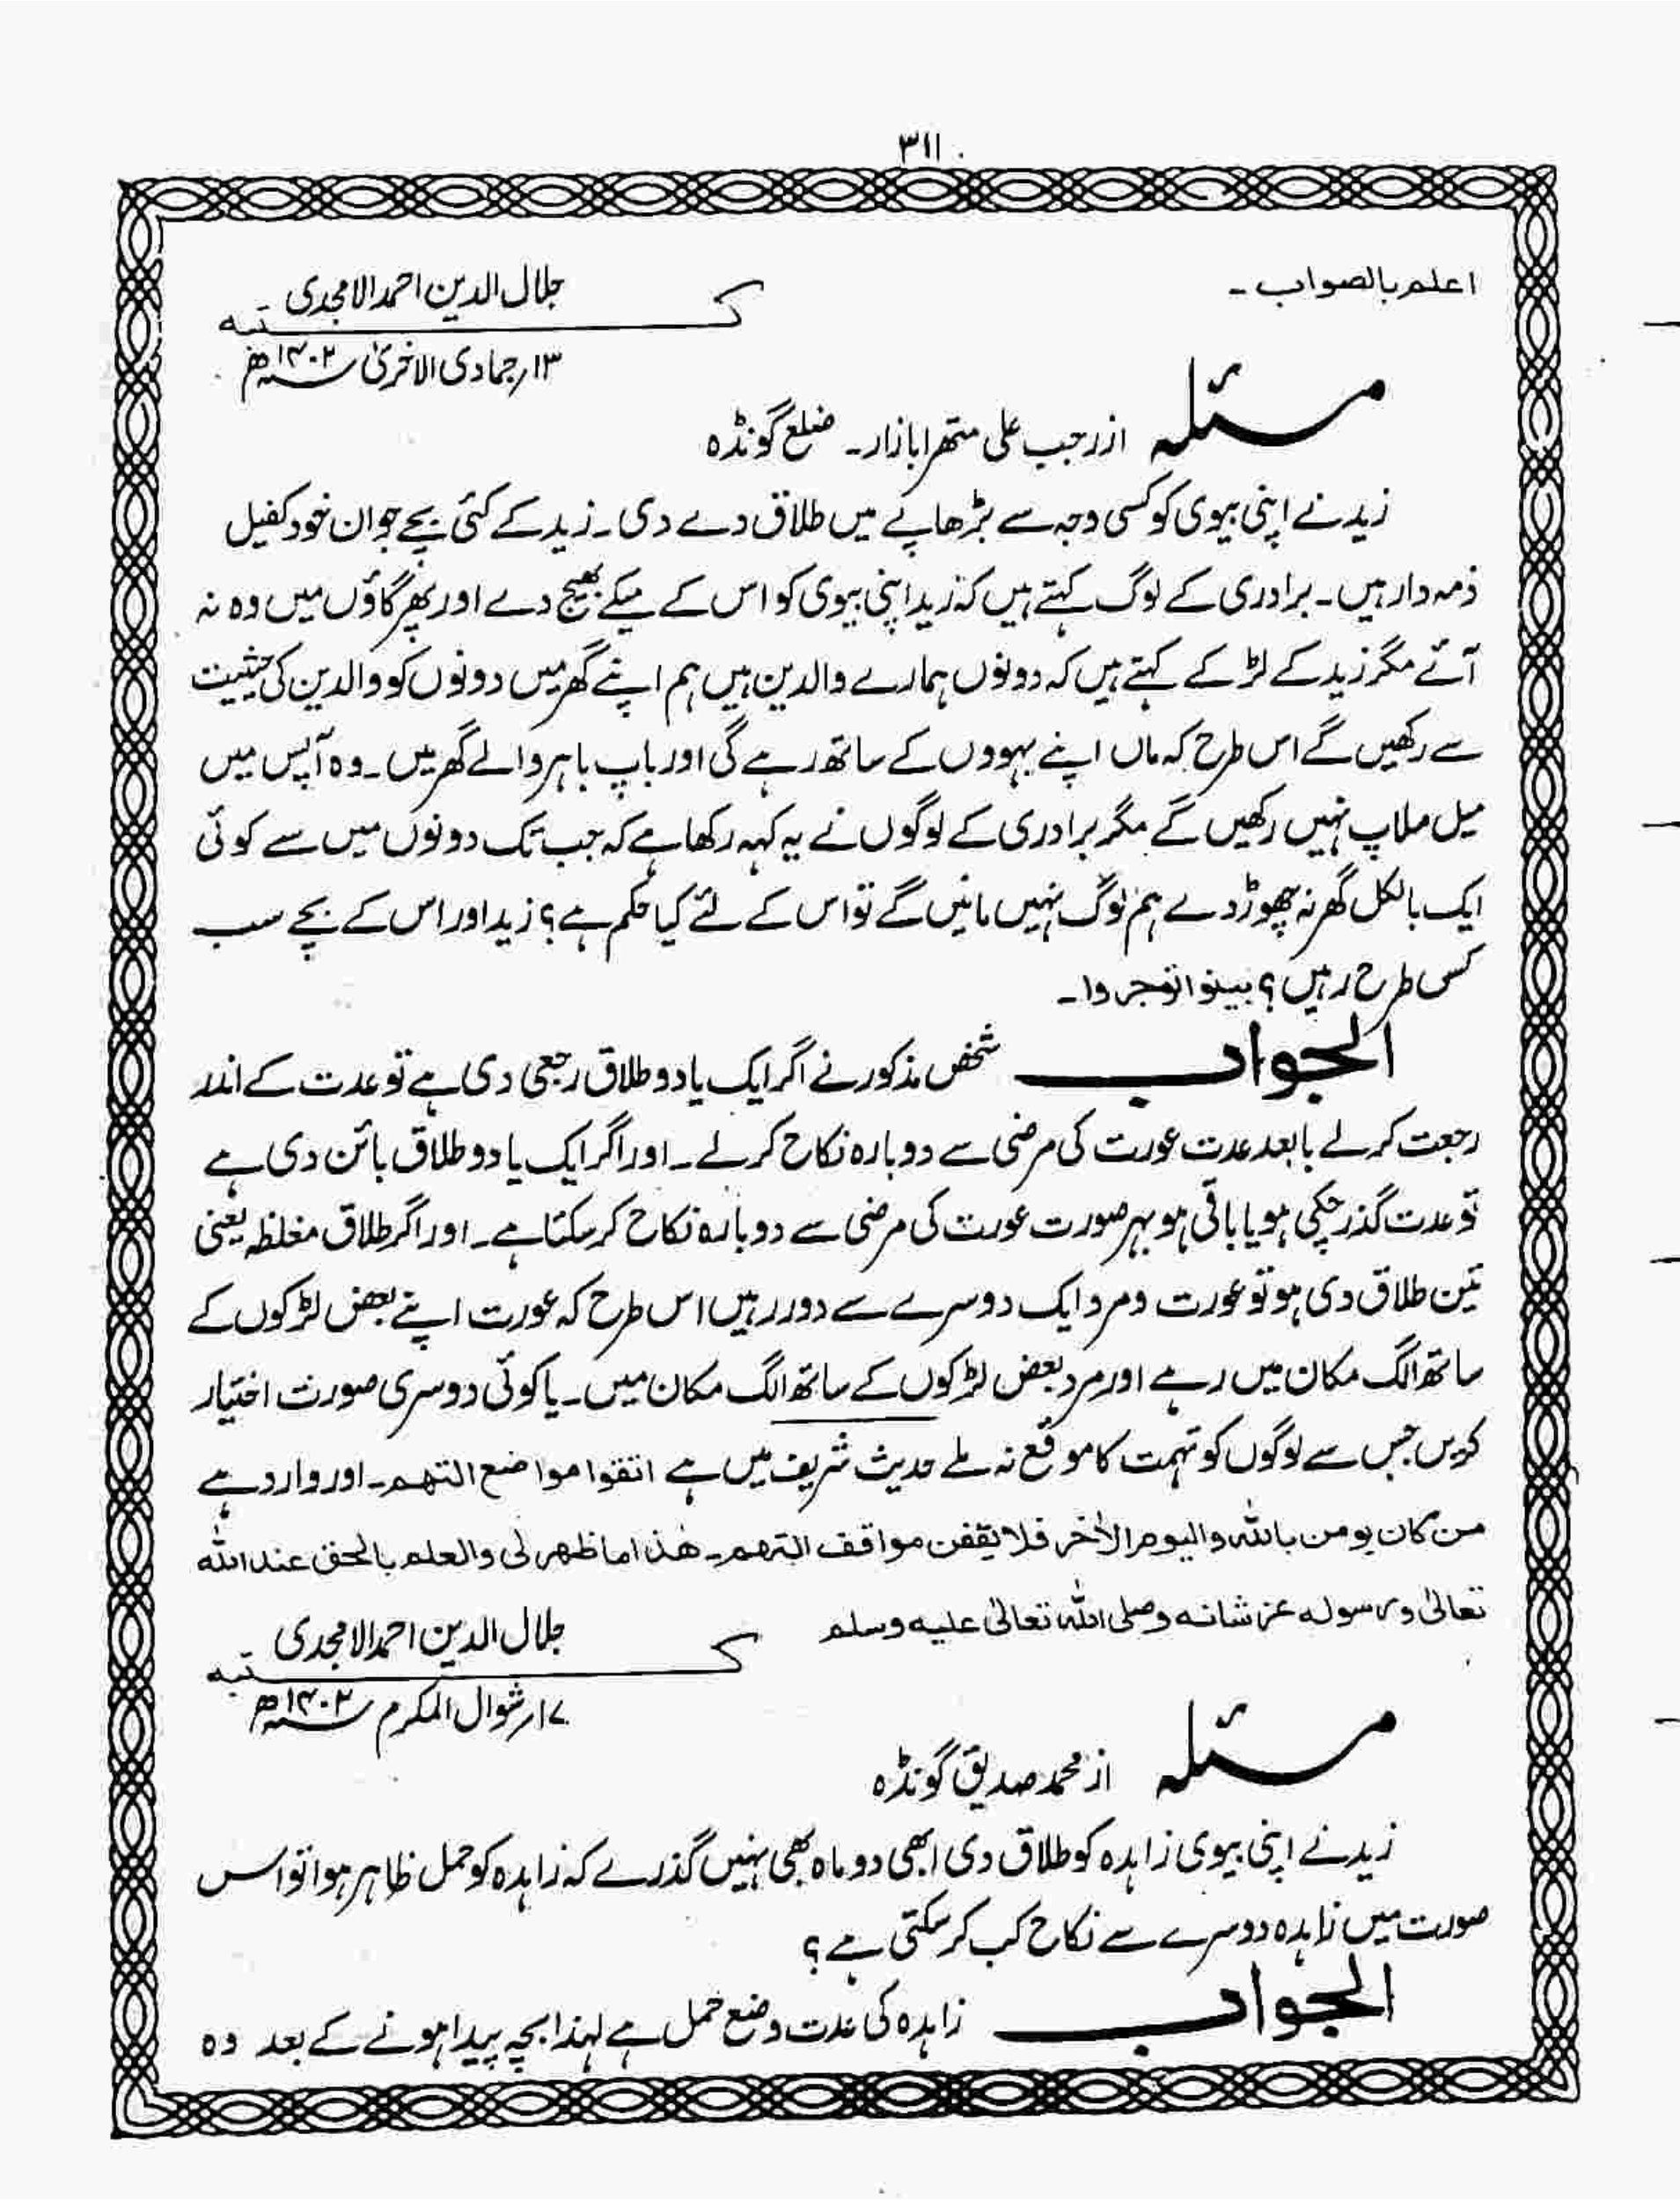 ۳۱۱
اعلم بالصواب۔
جلال الدین احمد الامجدی
کتبہ
۱۳؍جمادی الاخریٰ ۱۴۰۲ھ
مسئلہ از رجب علی متھرا بازار۔ ضلع گونڈہ
زید نے اپنی بیوی کو کسی وجہ سے بڑھاپے میں طلاق دے دی۔ زید کے کئی بچے جوان خود کفیل
ذمہ دار ہیں۔ برادری کے لوگ کہتے ہیں کہ زید اپنی بیوی کو اس کے میکے بھیج دے اور پھر گاؤں میں وہ نہ
آئے مگر زید کے لڑکے کہتے ہیں کہ دونوں ہمارے والدین ہیں ہم اپنے گھر میں دونوں کو والدین کی حیثیت
سے رکھیں گے اس طرح کہ ماں اپنے بہوؤں کے ساتھ رہے گی اور باپ باہر والے گھر میں۔ وہ آپس میں
میل ملاپ نہیں رکھیں گے مگر برادری کے لوگوں نے یہ کہہ رکھا ہے کہ جب تک دونوں میں سے کوئی
ایک بالکل گھر نہ چھوڑ دے ہم لوگ نہیں مانیں گے تو اس کے لئے کیا حکم ہے؟ زید اور اس کے بچے سب
کس طرح رہیں؟ بینوا توجروا۔
الجواب شخص مذکور نے اگر ایک یا دو طلاق رجعی دی ہے تو عدت کے اندر
رجعت کر لے یا بعد عدت عورت کی مرضی سے دوبارہ نکاح کر لے۔ اور اگر ایک یا دو طلاق بائن دی ہے
تو عدت گذر چکی ہو یا باقی ہو بہر صورت عورت کی مرضی سے دوبارہ نکاح کر سکتا ہے۔ اور اگر طلاق مغلظہ یعنی
تین طلاق دی ہو تو عورت و مرد ایک دوسرے سے دور رہیں اس طرح کہ عورت اپنے بعض لڑکوں کے
ساتھ الگ مکان میں رہے اور مرد بعض لڑکوں کے ساتھ الگ مکان میں۔ یا کوئی دوسری صورت اختیار
کریں جس سے لوگوں کو تہمت کا موقع نہ ملے حدیث شریف میں ہے اتقوا مواضع التهم۔ اور وارد ہے
من کان یومن باللہ والیوم الاٰخر فلا یقفن مواقف التہم۔ ھٰذا ما ظہر لی والعلم بالحق عند اللہ
تعالیٰ و رسولہ عز شانہ وصلی اللہ تعالیٰ علیہ وسلم
جلال الدین احمد الامجدی
کتبہ
۱۷؍شوال المکرم ۱۴۰۲ھ
مسئلہ از محمد صدیق گونڈہ
زید نے اپنی بیوی زاہدہ کو طلاق دی ابھی دو ماہ بھی نہیں گذرے کہ زاہدہ کو حمل ظاہر ہوا تو اس
صورت میں زاہدہ دوسرے سے نکاح کب کر سکتی ہے؟
الجواب زاہدہ کی عدت وضع حمل ہے لہٰذا بچہ پیدا ہونے کے بعد وہ